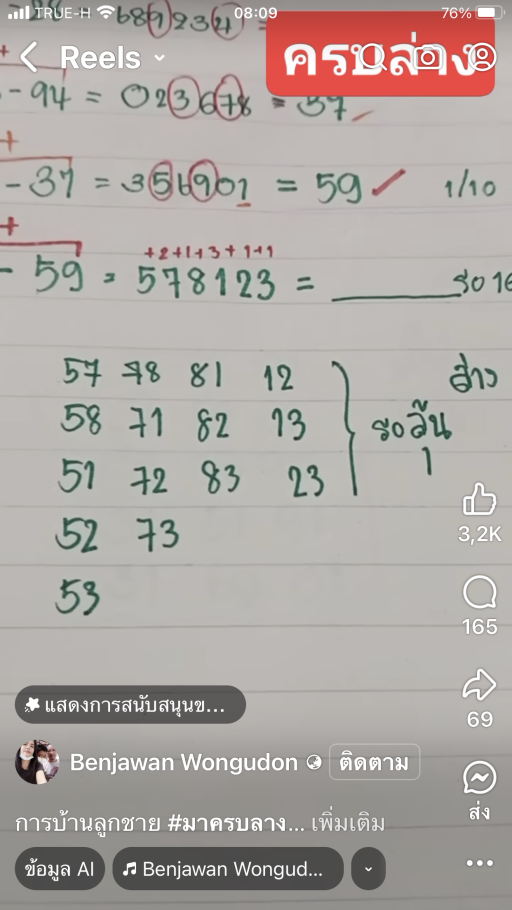 TRUE-H 08:09 76%
Reels
ครบล่าง
- 94 = 023678 = 37
+
- 37 = 356901 = 59 ✓ 1/10
+
+2+1+3+1+1
- 59 = 578123 = ______ รอ 16
57 78 81 12 ล่าง
58 71 82 13 รอลุ้น
51 72 83 23 1
52 73
53
3,2K
165
69
แสดงการสนับสนุนข...
Benjawan Wongudon ติดตาม
ส่ง
การบ้านลูกชาย #มาครบลาง... เพิ่มเติม
ข้อมูล AI Benjawan Wongud...